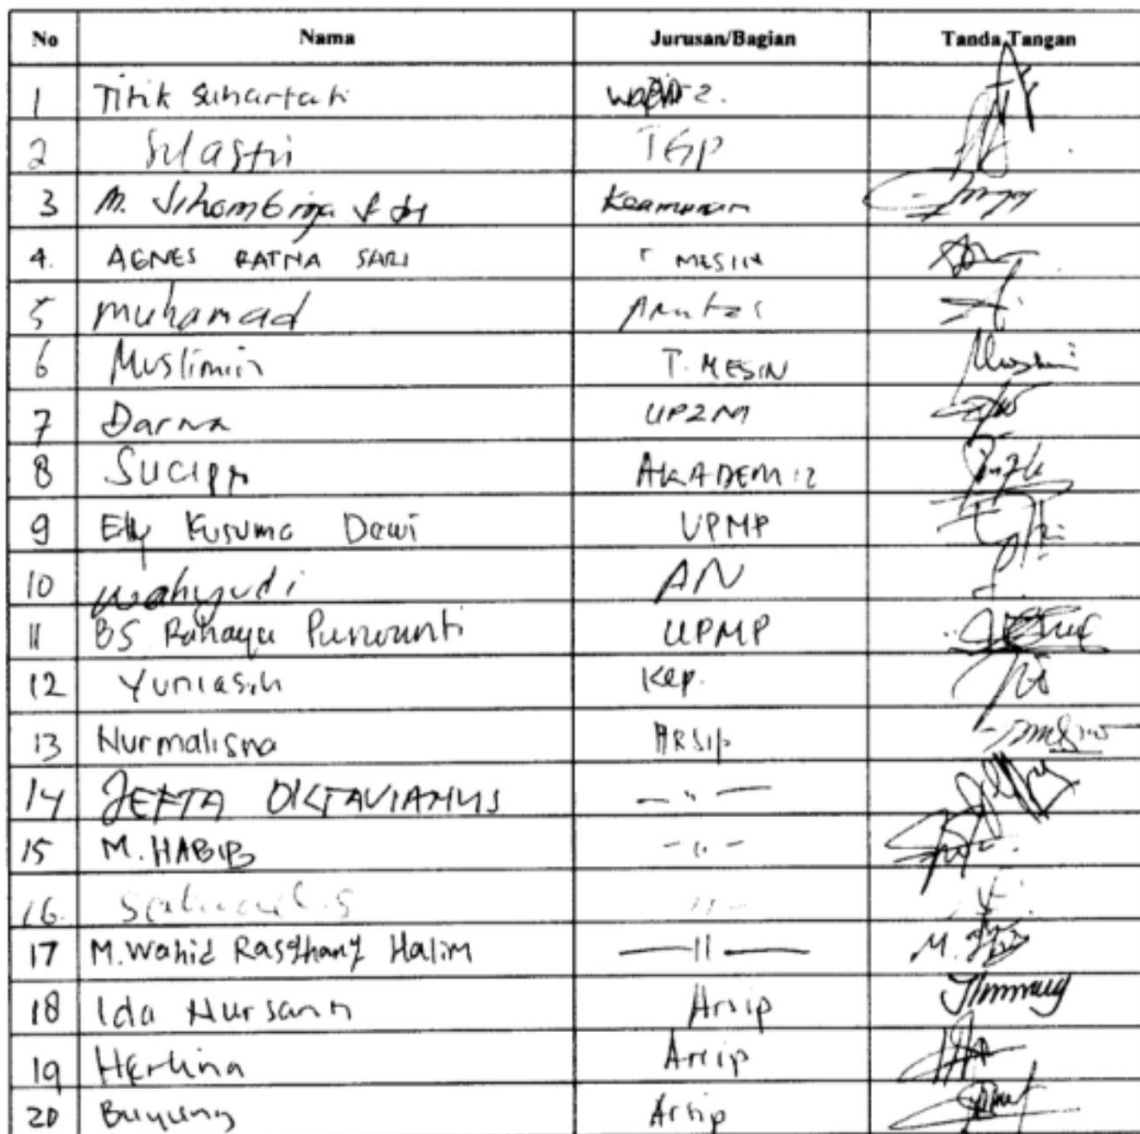 No Nama Jurusan/Bagian Tanda Tangan
1 Titik Suhartati 2.
2 Sulastri TGP
3 M. Sihombing Keamanan
4. AGNES RATNA SARI T MESIN
5 Muhamad
6 Muslimin T. MESIN
7 Darna UP2M
8 Sucipto AKADEMIK
9 Elly Kusuma Dewi UPMP
10 Wahyudi AN
11 BS Rahayu Purwanti UPMP
12 Yuniasih Kep.
13 Nurmalisna ARSIP
14 JEFTA OKTAVIANUS — " —
15 M. HABIB - " -
16.
17 M. Wahid Rasyhany Halim — 11 —
18 Ida Nursanti Arsip
19 Herlina Arsip
20 Buyung Arsip